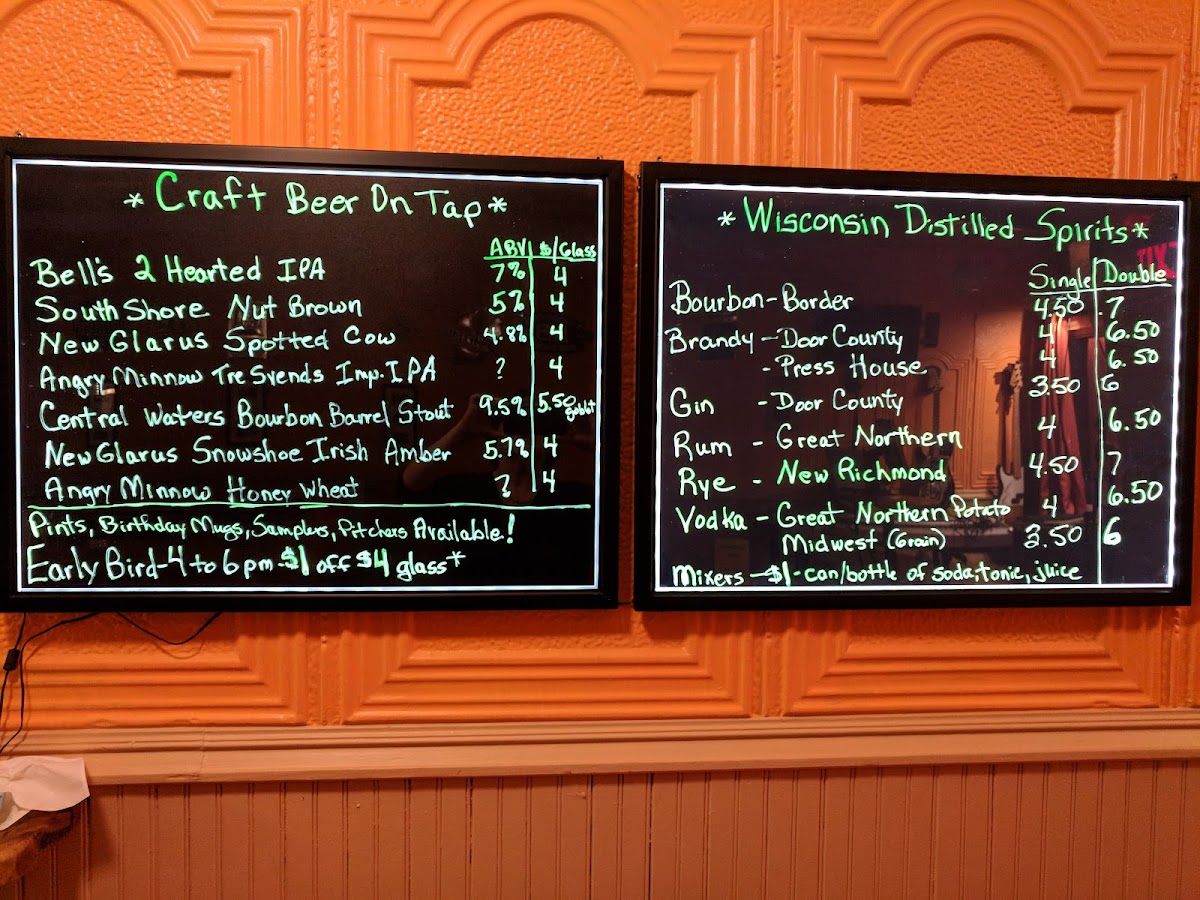 *Craft Beer On Tap*
ABV $/Glass
Bell's 2 Hearted IPA 7% 4
South Shore Nut Brown 5% 4
New Glarus Spotted Cow 4.8% 4
Angry Minnow Tre Svends Imp. IPA ? 4
Central Waters Bourbon Barrel Stout 9.5% 5.50 goblet
New Glarus Snowshoe Irish Amber 5.7% 4
Angry Minnow Honey Wheat ? 4
Pints, Birthday Mugs, Samplers, Pitchers Available!
Early Bird-4 to 6pm-$1 off $4 glass*
*Wisconsin Distilled Spirits*
Single Double
Bourbon-Border 4.50 7
Brandy-Door County 4 6.50
-Press House 4 6.50
Gin -Door County 3.50 6
Rum - Great Northern 4 6.50
Rye - New Richmond 4.50 7
Vodka - Great Northern Potato 4 6.50
Midwest (Grain) 3.50 6
Mixers -$1-can/bottle of soda, tonic, juice